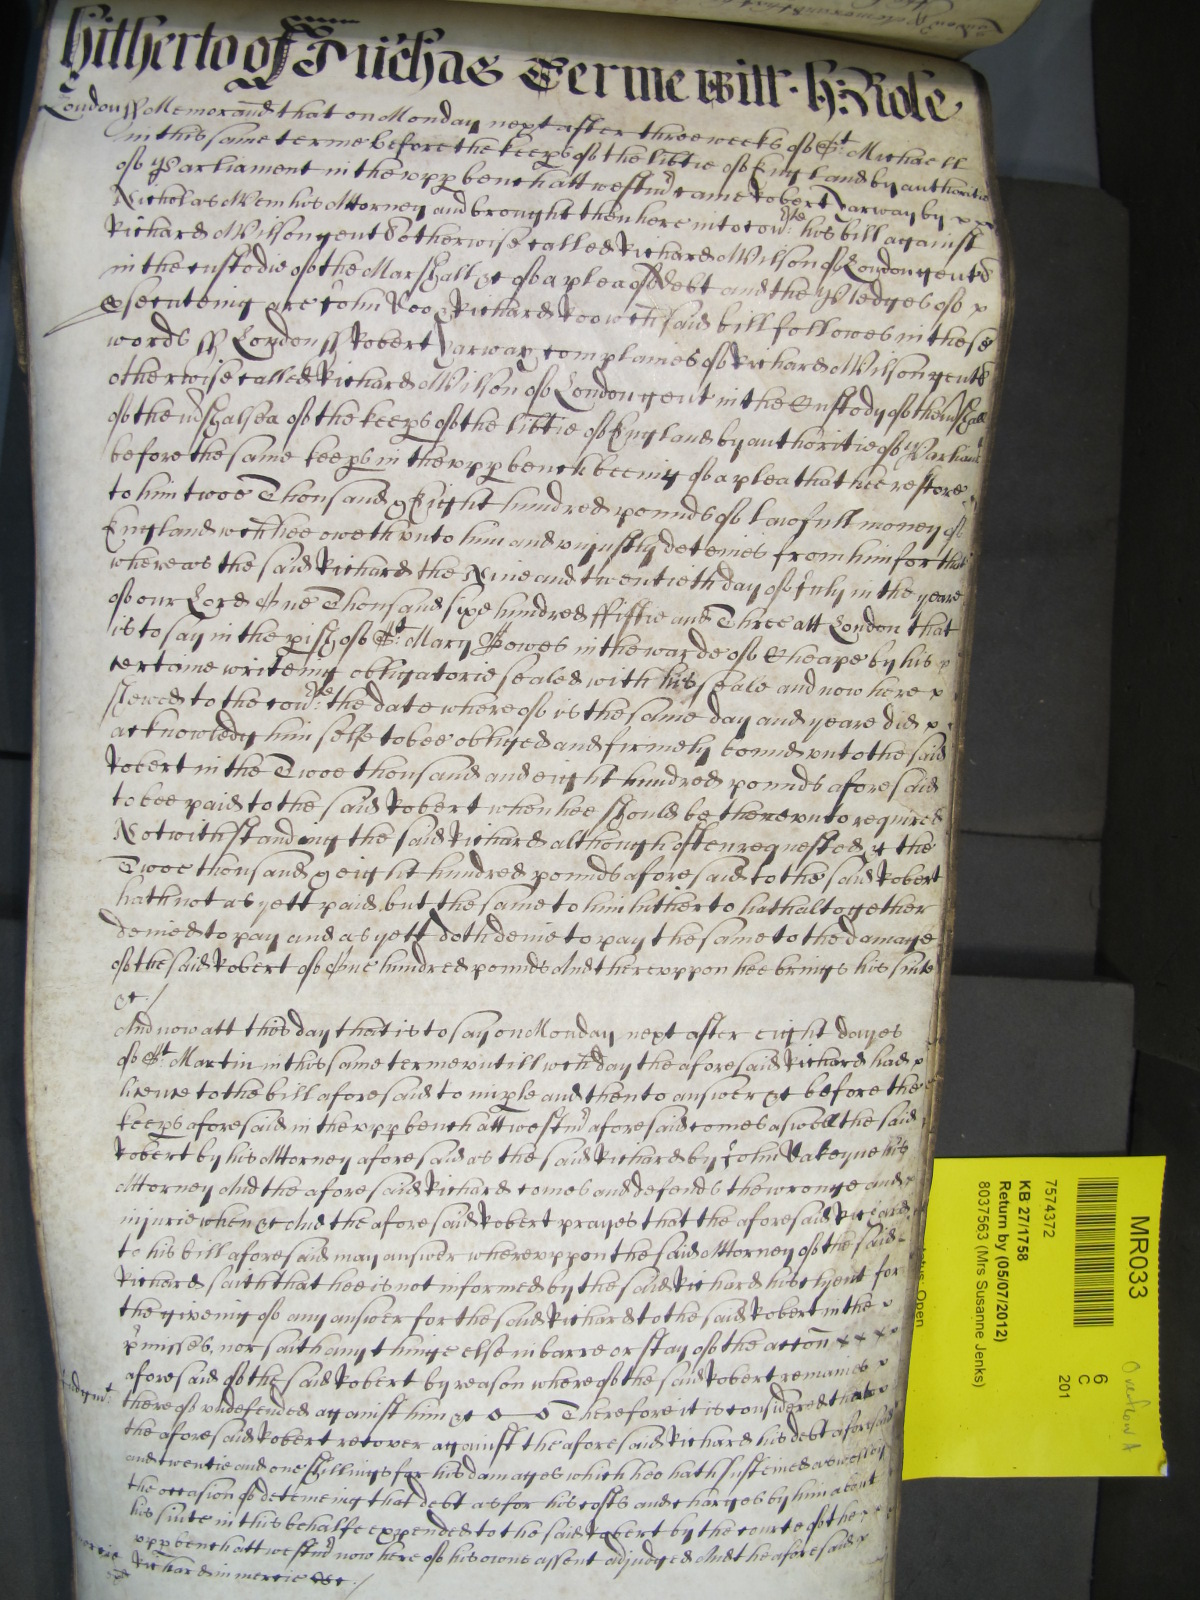 hitherto of Michas Terme witt. h: Role
London ss Memorand that on Monday next after three weekes of St: Michaell
in this same terme before the keeps of the libtie of England by authoritie
of Parliament in the upp bench att westmr came Robert Yarway by
Nicholas Wem his Attorney and brought then here into court his bill against
Richard Wilson gent otherwise called Richard Wilson of London gent
in the custodie of the Marshall &c of a plea of debt and the Pledges of
psecuteing are John Doo & Richard Roo wch said bill followes in these
words ss London ss Robert Yarway complaines of Richard Wilson gent
otherwise called Richard Wilson of London gent in the Custody of the mshall
of the mshalsea of the keeps of the libtie of England by authoritie of Parliamt
before the same keeps in the upp bench beeing of a plea that hee restore
to him twoe Thousand & Eight hundred pounds of lawfull money of
England wch hee oweth unto him and uniustly deteines from him for that
whereas the said Richard the Nine and twentieth day of July in the yeare
of our Lord One Thousand sixe hundred ffiftie and Three att London that
is to say in the pish of St: Mary Bowes in the warde of Cheape by his
certaine writeing obligatorie sealed with his seale and now here
shewed to the court the date whereof is the same day and yeare did
acknowledg himselfe to bee obliged and firmely bound unto the said
Robert in the Twoe thousand and eight hundred pounds aforesaid
to bee paid to the said Robert when hee should be thereunto required
Notwithstanding the said Richard although often requested &c the
Twoe thousand & eight hundred pounds aforesaid to the said Robert
hath not as yett paid, but the same to him hitherto hath altogether
denied to pay and as yett doth denie to pay the same to the damage
of the said Robert of One hundred pounds And thereuppon hee brings his suite
&c./
And now att this day that is to say on Monday next after eight dayes
of St: Martin in this same terme untill wch day the aforesaid Richard had
licence to the bill aforesaid to imple and then to answer &c before the
keeps aforesaid in the upp bench att westmr aforesaid comes aswell the said
Robert by his Attorney aforesaid as the said Richard by John his
Attorney And the aforesaid Richard comes and defends the wronge and
iniurie when &c And the aforesaid Robert prayes that the aforesaid Richard
to his bill aforesaid may answer whereuppon the said Attorney of the said
Richard saith that hee is not informed by the said Richard his clyent for
the giveing of any answer for the said Richard to the said Robert in the
pmisses, nor saith any thinge else in barre or stay of the accon
aforesaid of the said Robert by reason whereof the said Robert remaines
Judgmt thereof undefended against him &c Therefore it is considered that
the aforesaid Robert recover against the aforesaid Richard his debt aforesaid
and twentie and one shillings for his damages which hee hath susteined aswell by
the occasion of deteineing that debt as for his costs and charges by him about
his suite in this behalfe expended to the said Robert by the courte of the
upp bench att westmr now here of his owne assent adjudged And the aforesaid
Richard in mercie &c./
MR033
6
C
201
7574372
KB 27/1758
Return by (05/07/2012)
8037563 (Mrs Susanne Jenks)
Overflow A
Status: Open